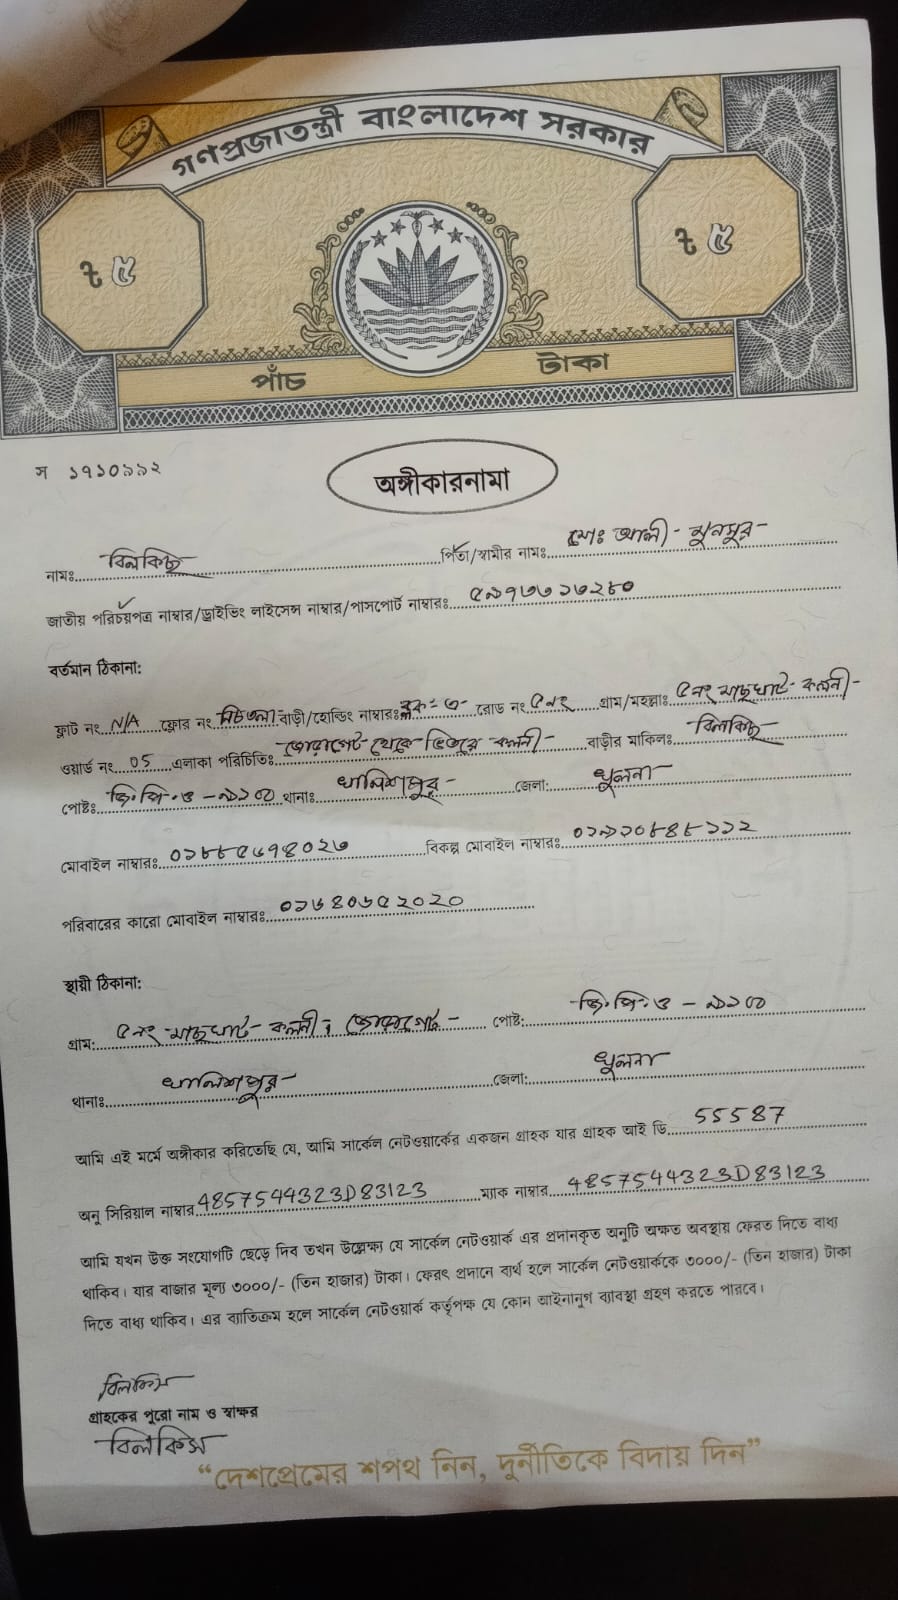 গণপ্রজাতন্ত্রী বাংলাদেশ সরকার
৳ ৫ ৳ ৫
পাঁচ টাকা
স ১৭১০৯৯২
অঙ্গীকারনামা
নামঃ বিলকিছ পিতা/স্বামীর নামঃ মোঃ আলী মুনসুর
জাতীয় পরিচয়পত্র নাম্বার/ড্রাইভিং লাইসেন্স নাম্বার/পাসপোর্ট নাম্বারঃ
বর্তমান ঠিকানা:
ফ্লাট নং N/A ফ্লোর নং নিচতলা বাড়ী/হোল্ডিং নাম্বারঃ রোড নং ৫নং গ্রাম/মহল্লাঃ ৫নং মাছঘাট কলনী
ওয়ার্ড নং 05 এলাকা পরিচিতিঃ থেকে ভিতরে কলনী বাড়ীর মালিকঃ বিলকিছ
পোষ্টঃ জি.পি.ও - ৯১০০ থানাঃ খালিশপুর জেলা: খুলনা
মোবাইল নাম্বারঃ বিকল্প মোবাইল নাম্বারঃ
পরিবারের কারো মোবাইল নাম্বারঃ
স্থায়ী ঠিকানা:
গ্রাম: ৫নং মাছঘাট কলনী, পোষ্ট: জি.পি.ও - ৯১০০
থানাঃ খালিশপুর জেলা: খুলনা
আমি এই মর্মে অঙ্গীকার করিতেছি যে, আমি সার্কেল নেটওয়ার্কের একজন গ্রাহক যার গ্রাহক আই ডি 55587
অনু সিরিয়াল নাম্বার 4857544323D83123 ম্যাক নাম্বার 4857544323D83123
আমি যখন উক্ত সংযোগটি ছেড়ে দিব তখন উল্লেক্ষ্য যে সার্কেল নেটওয়ার্ক এর প্রদানকৃত অনুটি অক্ষত অবস্থায় ফেরত দিতে বাধ্য
থাকিব। যার বাজার মূল্য ৩০০০/- (তিন হাজার) টাকা। ফেরৎ প্রদানে ব্যর্থ হলে সার্কেল নেটওয়ার্ককে ৩০০০/- (তিন হাজার) টাকা
দিতে বাধ্য থাকিব। এর ব্যতিক্রম হলে সার্কেল নেটওয়ার্ক কর্তৃপক্ষ যে কোন আইনানুগ ব্যাবস্থা গ্রহণ করতে পারবে।
বিলকিস
গ্রাহকের পুরো নাম ও স্বাক্ষর
বিলকিস
“দেশপ্রেমের শপথ নিন, দুর্নীতিকে বিদায় দিন”